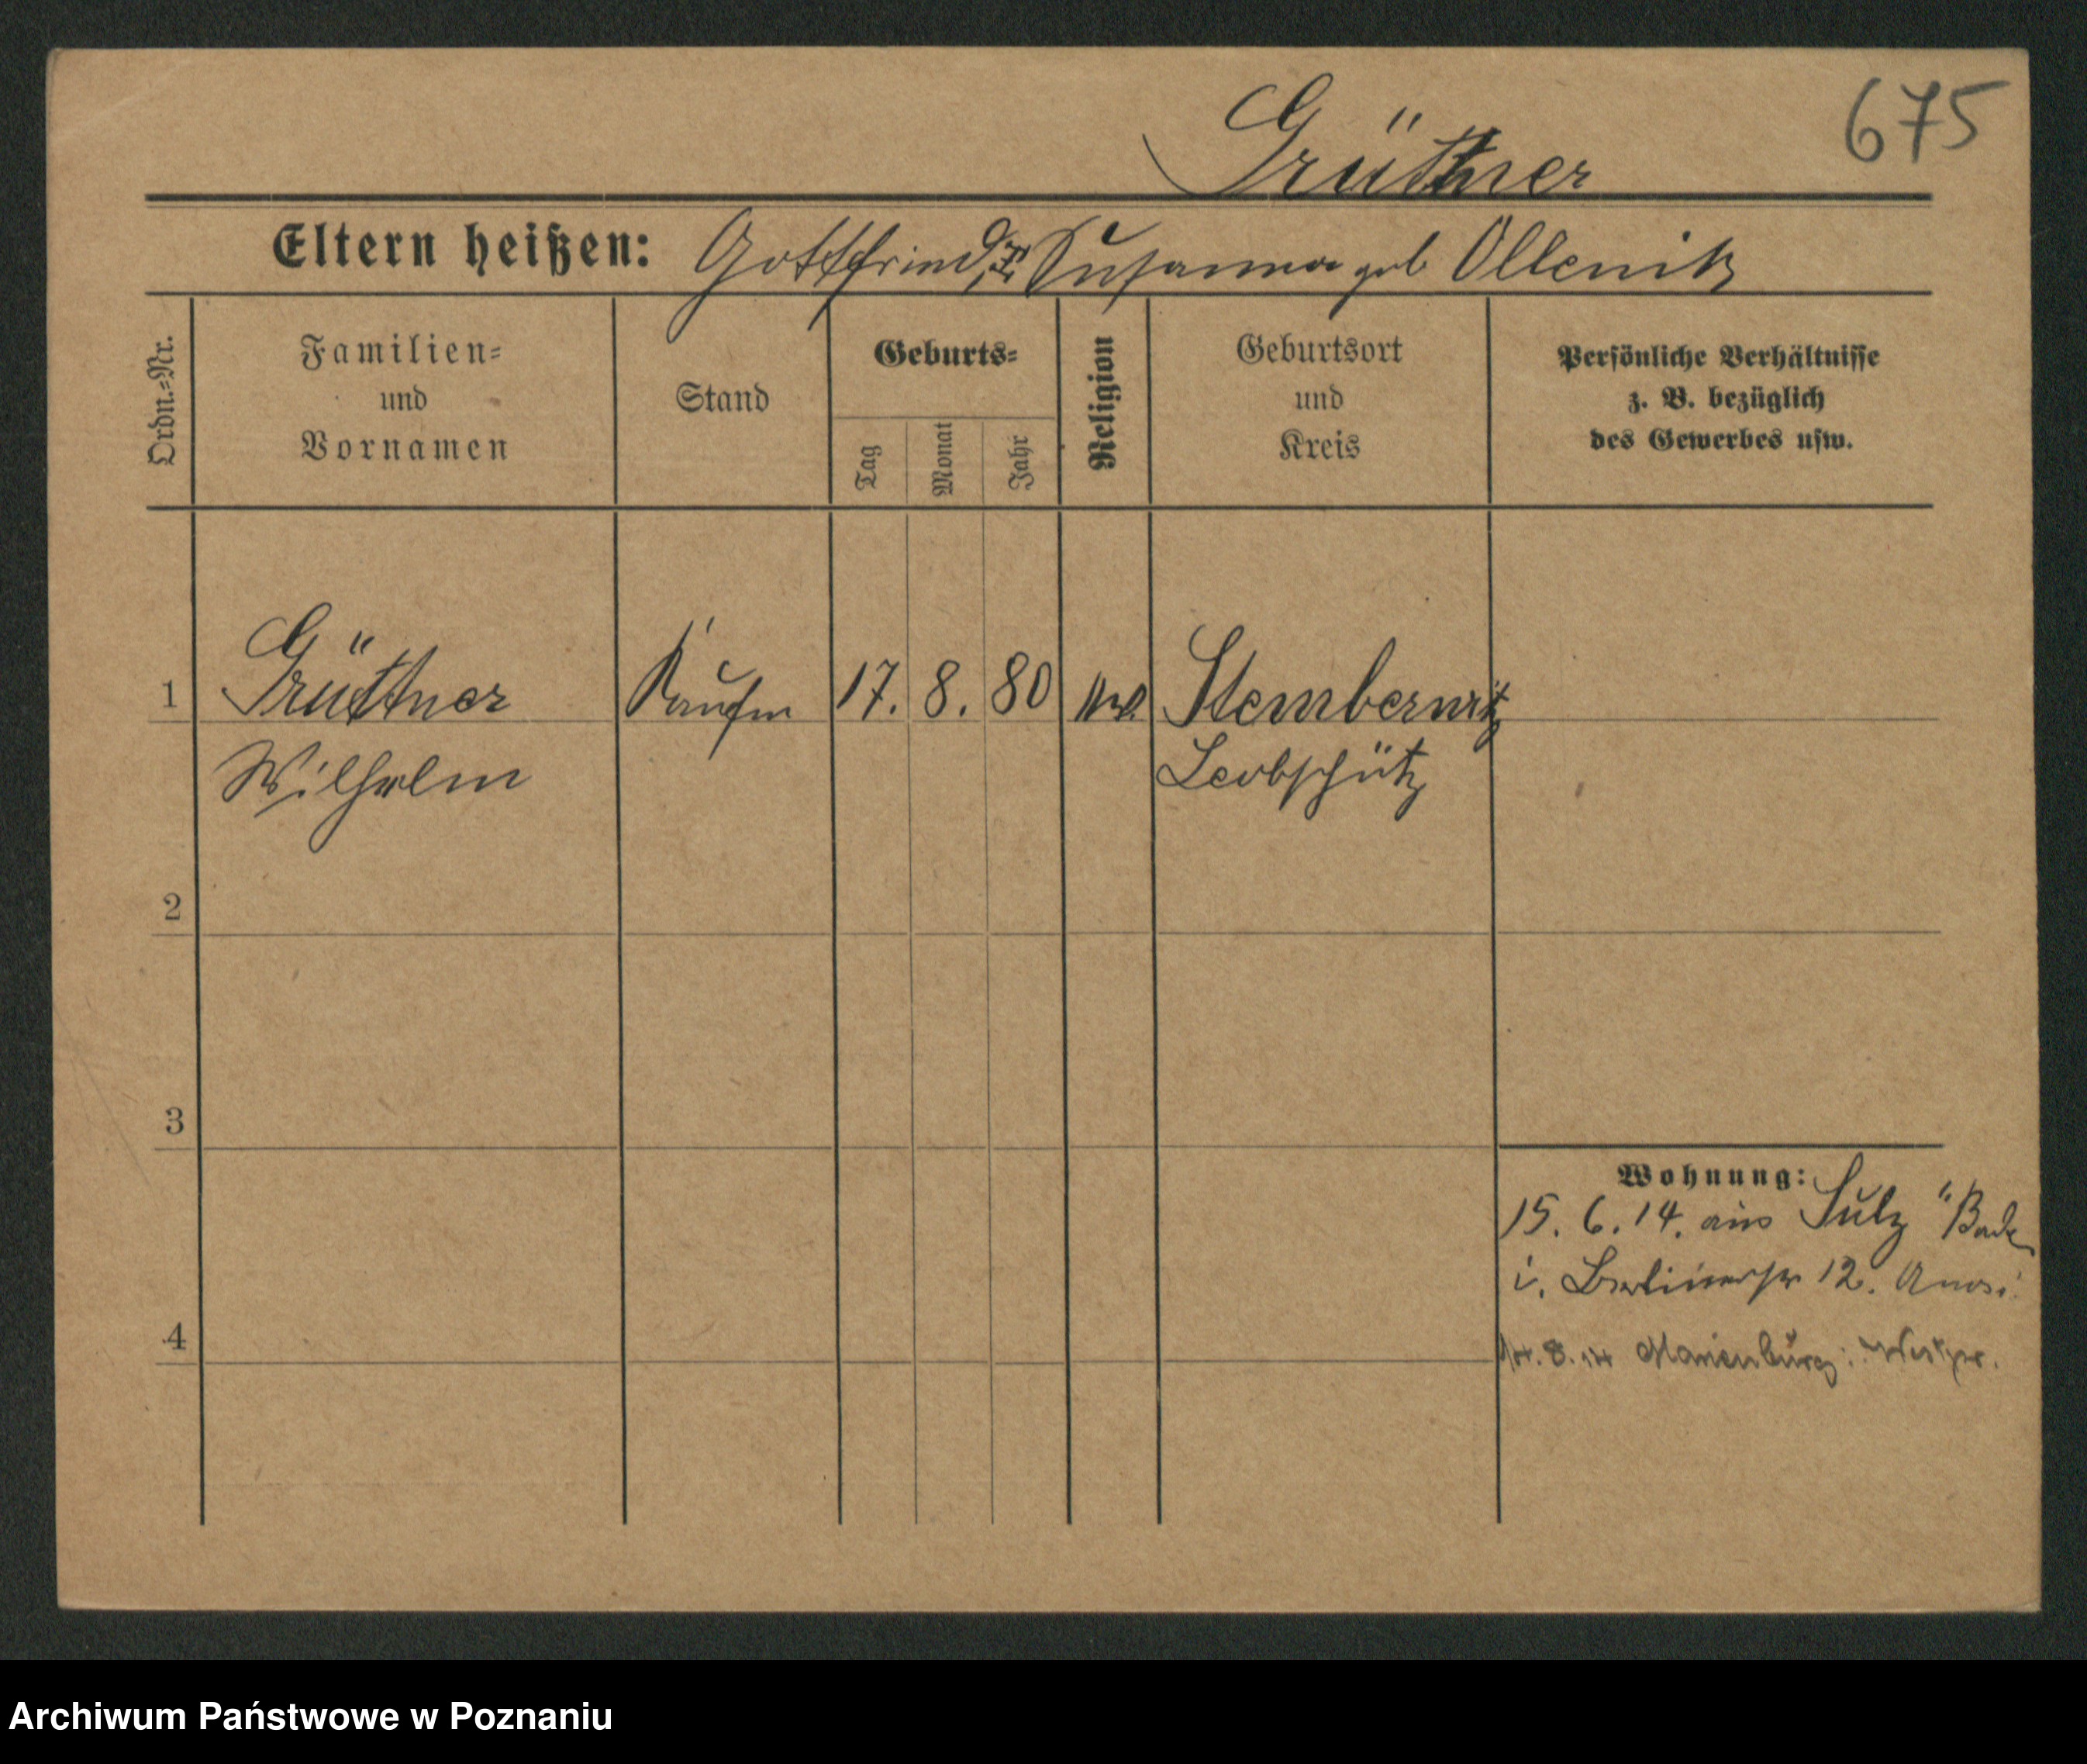 675
Grüttner
Eltern heißen: Gottfried, Susanna geb Ollenik
Ordn.-Nr.
Familien-
und
Vornamen
Stand
Geburts-
Tag
Monat
Jahr
Religion
Geburtsort
und
Kreis
Persönliche Verhältnisse
z. B. bezüglich
des Gewerbes usw.
1 Grüttner Kaufm 17. 8. 80
Wilhelm Leobschütz
2
3
4
Wohnung:
15. 6. 14. aus Sulz Baden
i. Berlinerstr 12.
8. 14 Marienburg Westpr.
Archiwum Państwowe w Poznaniu